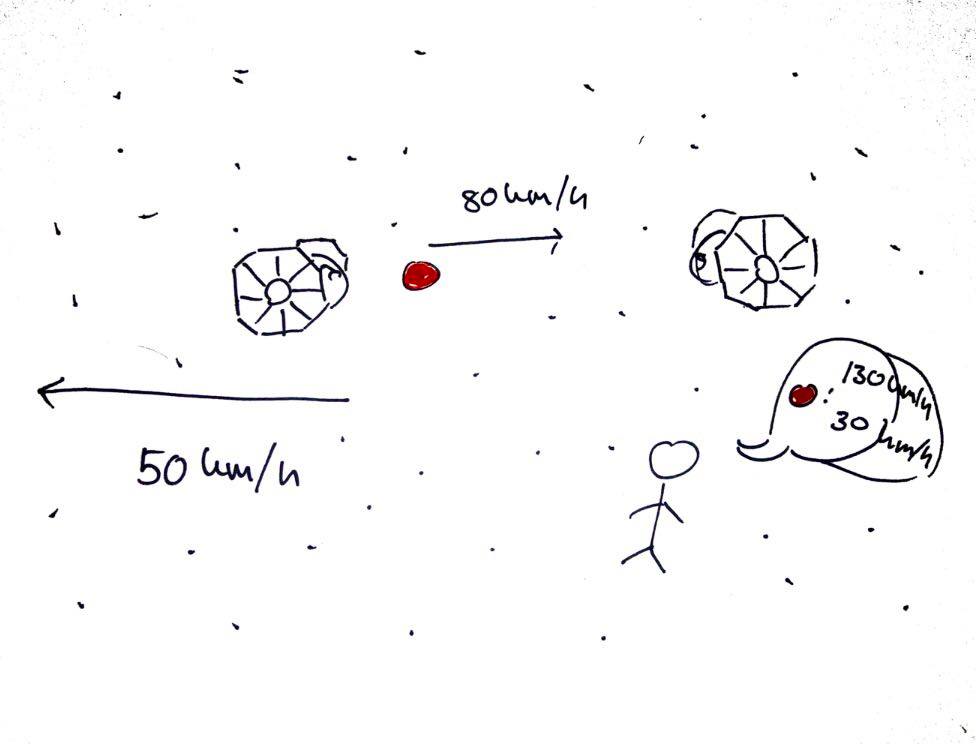 80 km/h
50 km/h
: 130 km/h
30 km/h